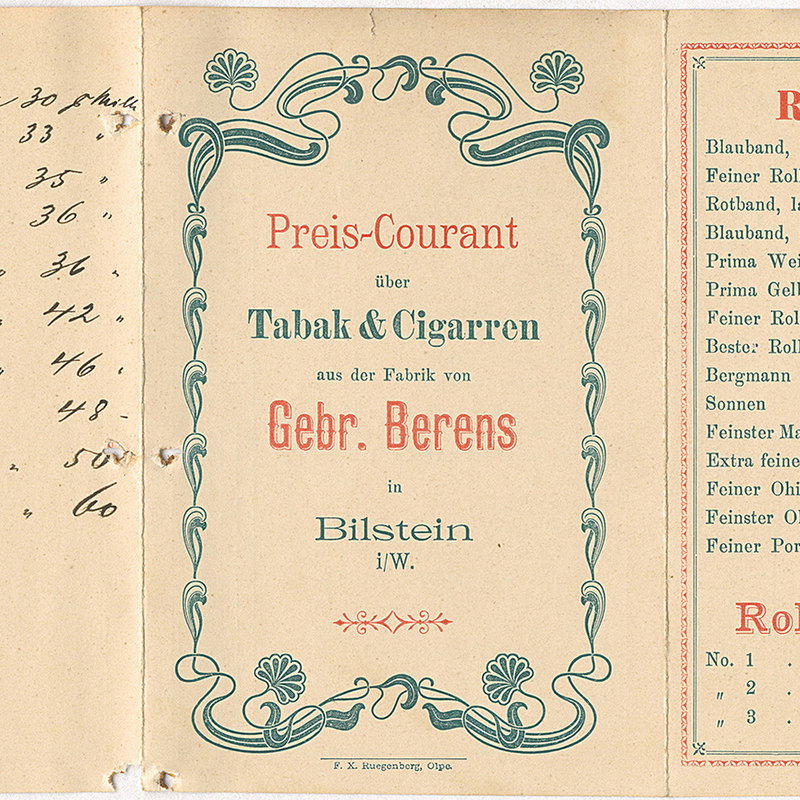 30 p Mille
33 "
35 "
36 "
" 36 "
" 42 "
" 46 "
48 -
" 50
" 60
Preis-Courant
über
Tabak & Cigarren
aus der Fabrik von
Gebr. Berens
in
Bilstein
i/W.
F. X. Ruegenberg, Olpe.
R
Blauband,
Feiner Roll
Rotband, la
Blauband,
Prima Wei
Prima Gelb
Feiner Rol
Bester Roll
Bergmann
Sonnen
Feinster Ma
Extra feine
Feiner Ohi
Feinster Oh
Feiner Por
Rol
No. 1 .
" 2 .
" 3 .